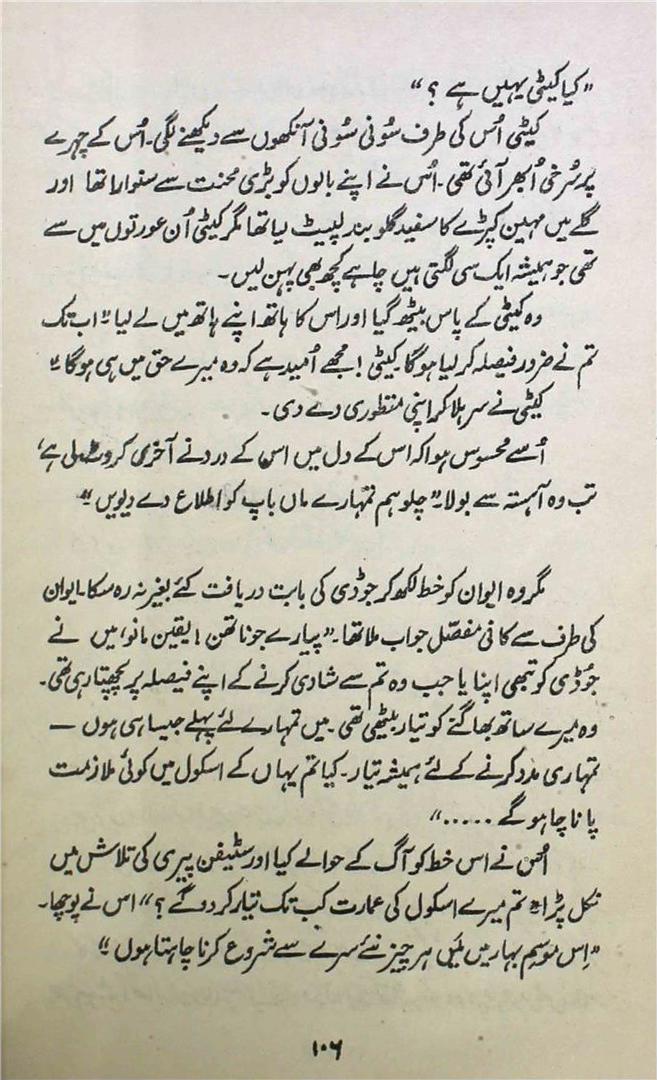 "کیا کیٹی یہیں ہے ؟"
کیٹی اُس کی طرف سُونی سُونی آنکھوں سے دیکھنے لگی۔ اُس کے چہرے
پر سُرخی اُبھر آئی تھی۔ اُس نے اپنے بالوں کو بڑی محنت سے سنوارا تھا اور
گلے میں مہین کپڑے کا سفید گلوبند لپیٹ لیا تھا مگر کیٹی اُن عورتوں میں سے
تھی جو ہمیشہ ایک سی لگتی ہیں چاہے کچھ بھی پہن لیں۔
وہ کیٹی کے پاس بیٹھ گیا اور اس کا ہاتھ اپنے ہاتھ میں لے لیا "اب تک
تم نے ضرور فیصلہ کر لیا ہوگا۔ کیٹی ! مجھے اُمید ہے کہ وہ میرے حق میں ہی ہوگا"
کیٹی نے سر ہلا کر اپنی منظوری دے دی۔
اُسے محسوس ہوا کہ اس کے دل میں اس کے درد نے آخری کروٹ لی ہے،
تب وہ آہستہ سے بولا۔ "چلو ہم تمہارے ماں باپ کو اطلاع دے دیویں"
مگر وہ ایوان کو خط لکھ کر جوڈی کی بابت دریافت کئے بغیر نہ رہ سکا۔ ایوان
کی طرف سے کافی مفصّل جواب ملا تھا۔ "پیارے جوناتھن ! یقین مانو، میں نے
جُوڈی کو تبھی اپنایا جب وہ تم سے شادی کرنے کے اپنے فیصلہ پر پچھتا رہی تھی۔
وہ میرے ساتھ بھاگنے کو تیار بیٹھی تھی۔ میں تمہارے لئے پہلے جیسا ہی ہوں —
تمہاری مدد کرنے کے لئے ہمیشہ تیار۔ کیا تم یہاں کے اسکول میں کوئی ملازمت
پانا چاہو گے ....."
اُس نے اس خط کو آگ کے حوالے کیا اور سٹیفن پیری کی تلاش میں
نکل پڑا۔ "تم میرے اسکول کی عمارت کب تک تیار کر دو گے ؟" اس نے پوچھا۔
"اِس موسمِ بہار میں مَیں ہر چیز نئے سرے سے شروع کرنا چاہتا ہوں"
۱۰۶